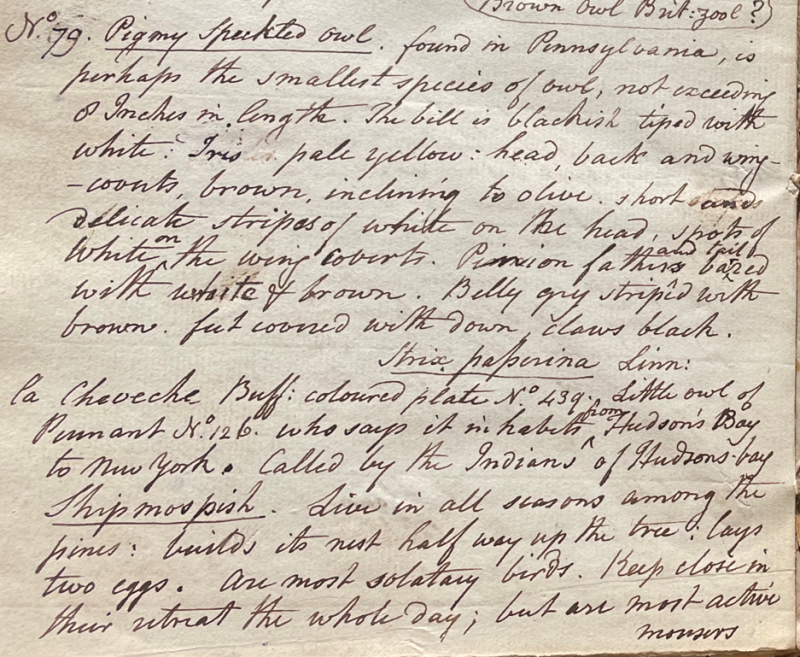 Brown owl Brit: zool?
No. 79. Pigmy speckted owl. found in Pennsylvania, is
perhaps the smallest species of owl, not exceeding
8 Inches in length. The bill is blackish tiped with
white: Iris pale yellow: head, back and wing-
-coverts, brown, inclining to olive. short and
delicate stripes of white on the head, spots of
white on the wing coverts. Pinion fathers and tail bared
with white & brown. Belly grey strip'd with
brown. feet covered with down, claws black.
Strix paperina Linn:
La Cheveche Buff: coloured plate No 439. Little owl of
Pennant No. 126. who says it inhabits from Hudson's Bay
to New York. Called by the Indians of Hudsons-bay
Shipmospish. Live in all seasons among the
pines: builds its nest half way up the tree: lays
two eggs. Are most solatary birds. Keep close in
their retreat the whole day; but are most active
mousers